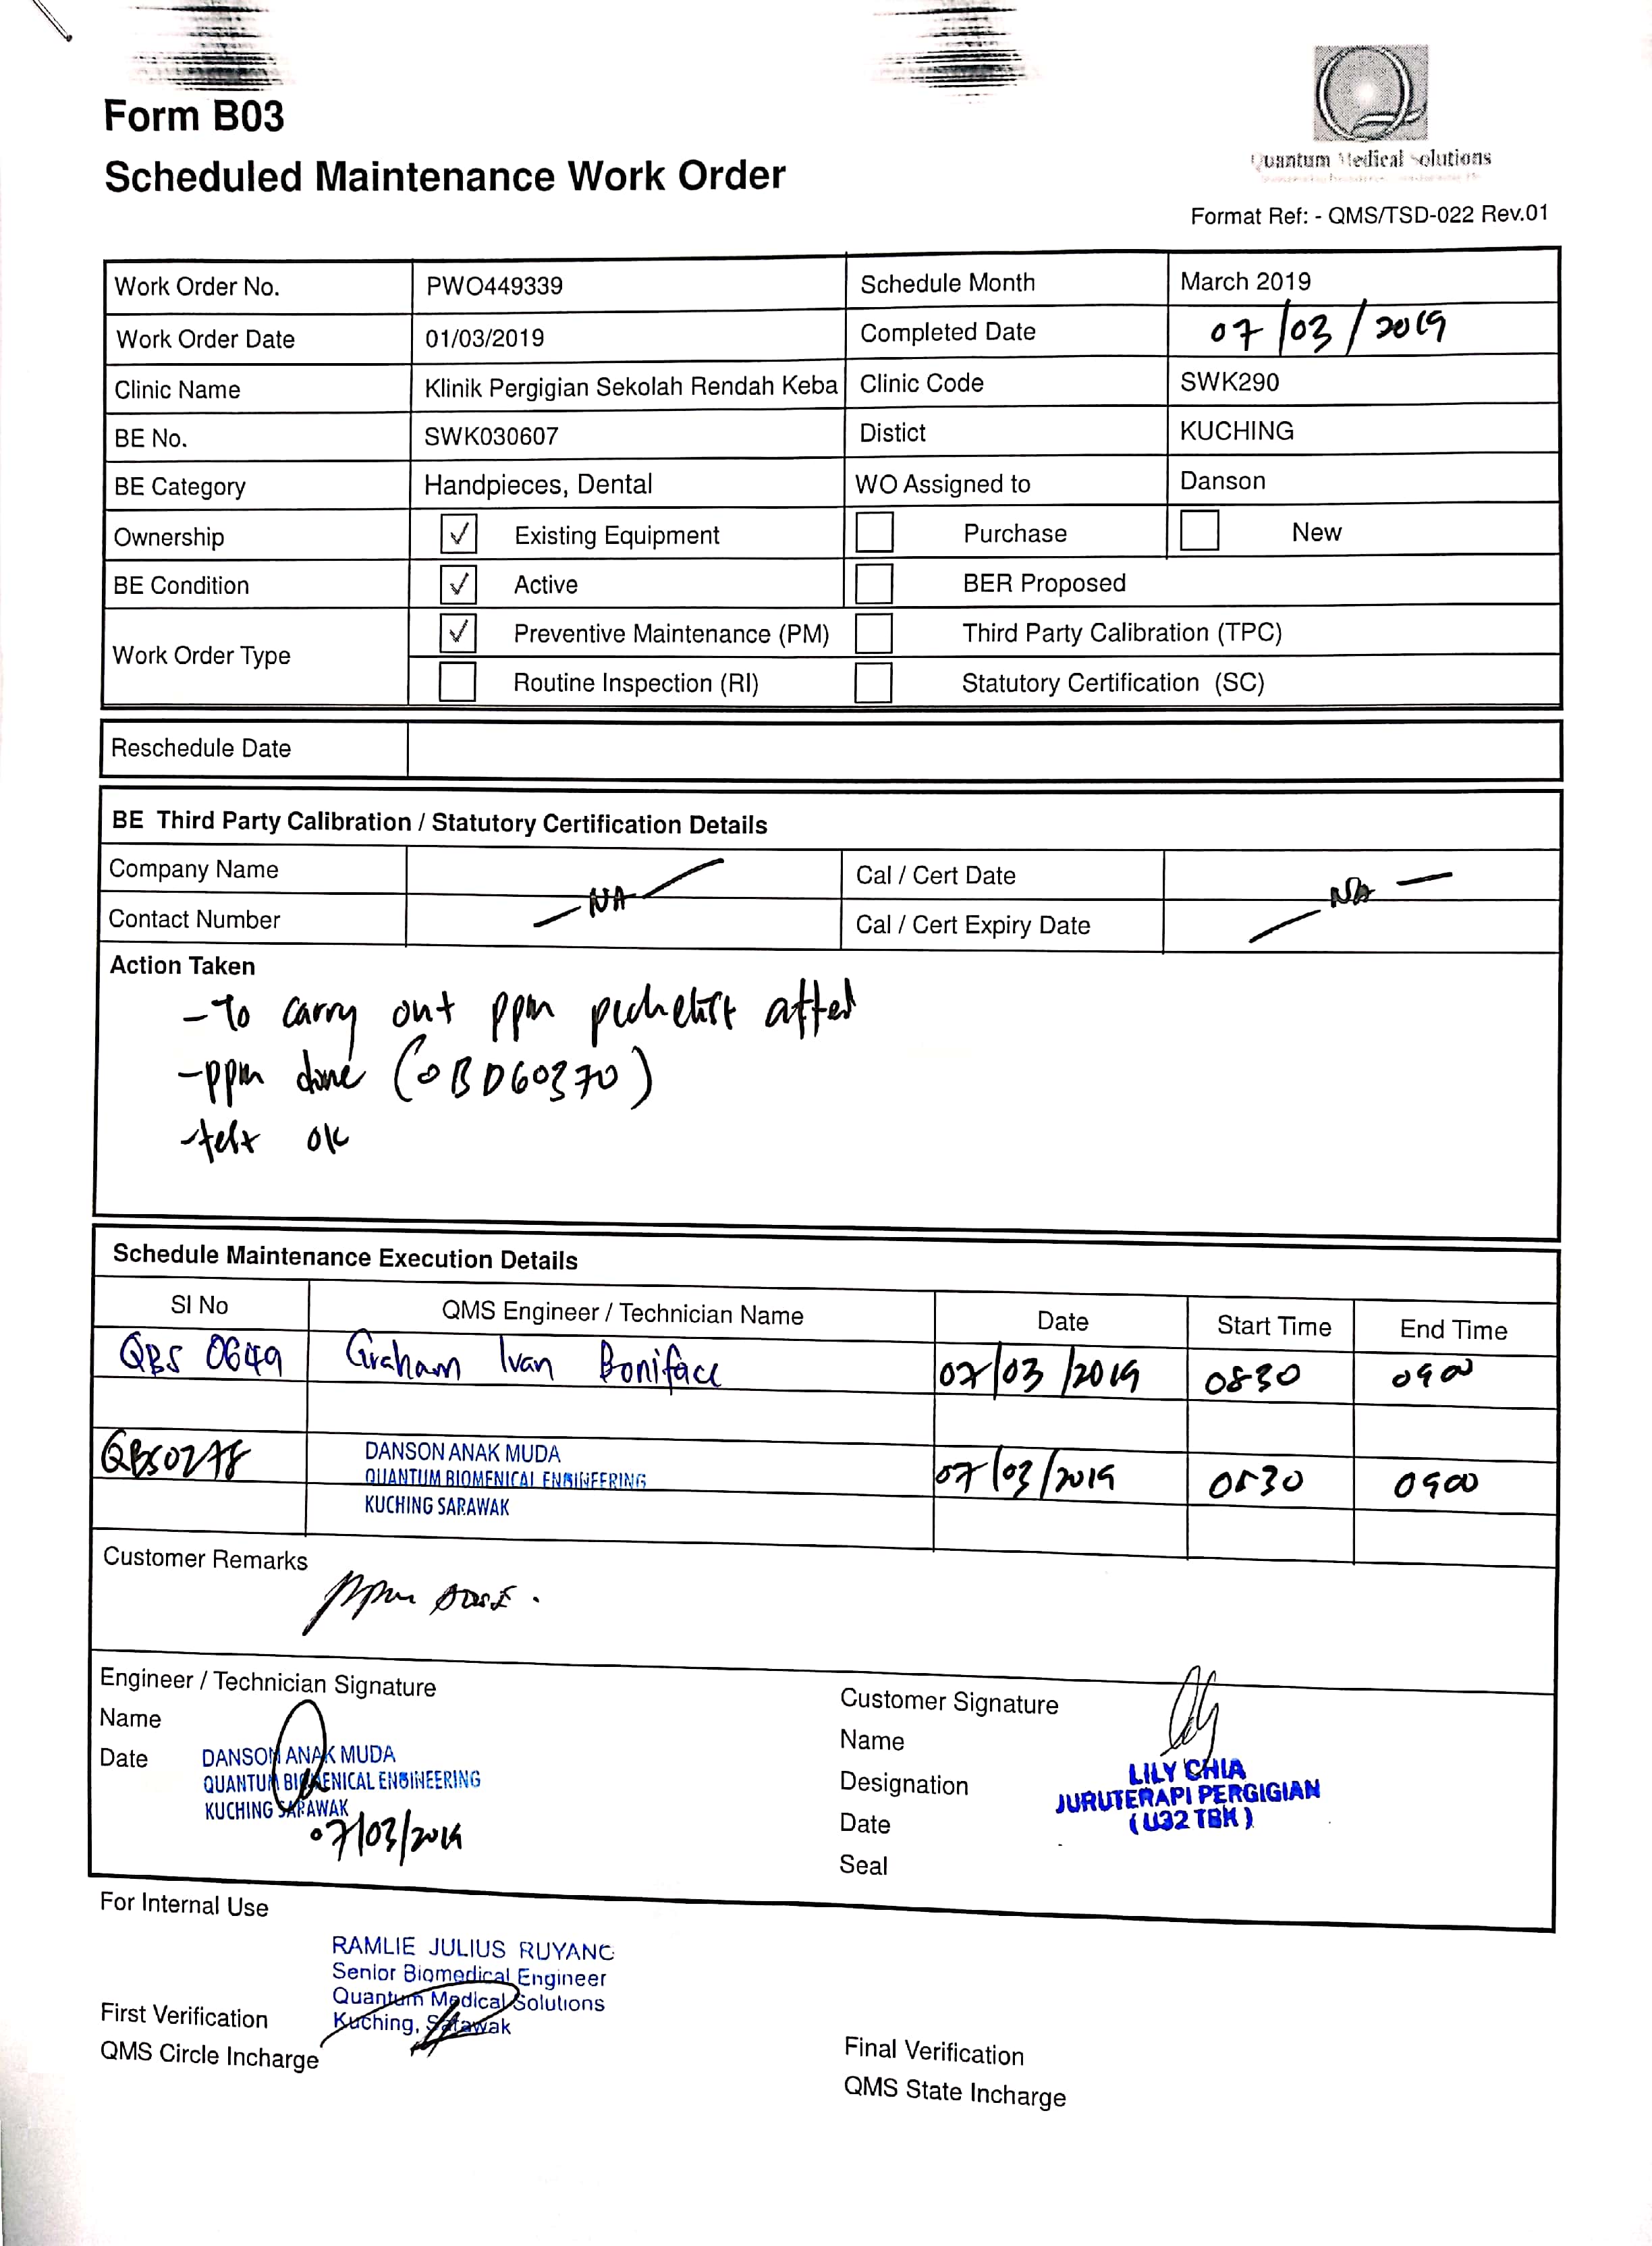 Form B03
Scheduled Maintenance Work Order
Quantum Medical Solutions
Format Ref: - QMS/TSD-022 Rev.01
Work Order No. PWO449339 Schedule Month March 2019
Work Order Date 01/03/2019 Completed Date 07/03/2019
Clinic Name Klinik Pergigian Sekolah Rendah Keba Clinic Code SWK290
BE No. SWK030607 Distict KUCHING
BE Category Handpieces, Dental WO Assigned to Danson
Ownership ✓ Existing Equipment Purchase New
BE Condition ✓ Active BER Proposed
Work Order Type ✓ Preventive Maintenance (PM) Third Party Calibration (TPC)
Routine Inspection (RI) Statutory Certification (SC)
Reschedule Date
BE Third Party Calibration / Statutory Certification Details
Company Name Cal / Cert Date
- NA - - NA -
Contact Number Cal / Cert Expiry Date
Action Taken
- To carry out ppm
- ppm done (OBD60370)
- test ok
Schedule Maintenance Execution Details
SI No QMS Engineer / Technician Name Date Start Time End Time
QBS 0649 Graham Ivan Boniface 07/03/2019 0830 0900
QBS0278 DANSON ANAK MUDA 07/03/2019 0830 0900
QUANTUM BIOMENICAL ENGINEERING
KUCHING SARAWAK
Customer Remarks
ppm DONE.
Engineer / Technician Signature
Name
Date DANSON ANAK MUDA
QUANTUM BIOMENICAL ENGINEERING
KUCHING SARAWAK
07/03/2019
Customer Signature
Name
LILY CHIA
Designation JURUTERAPI PERGIGIAN
Date (U32 TBK)
Seal
For Internal Use
RAMLIE JULIUS RUYANG
Senior Biomedical Engineer
Quantum Medical Solutions
First Verification Kuching, Sarawak
QMS Circle Incharge
Final Verification
QMS State Incharge